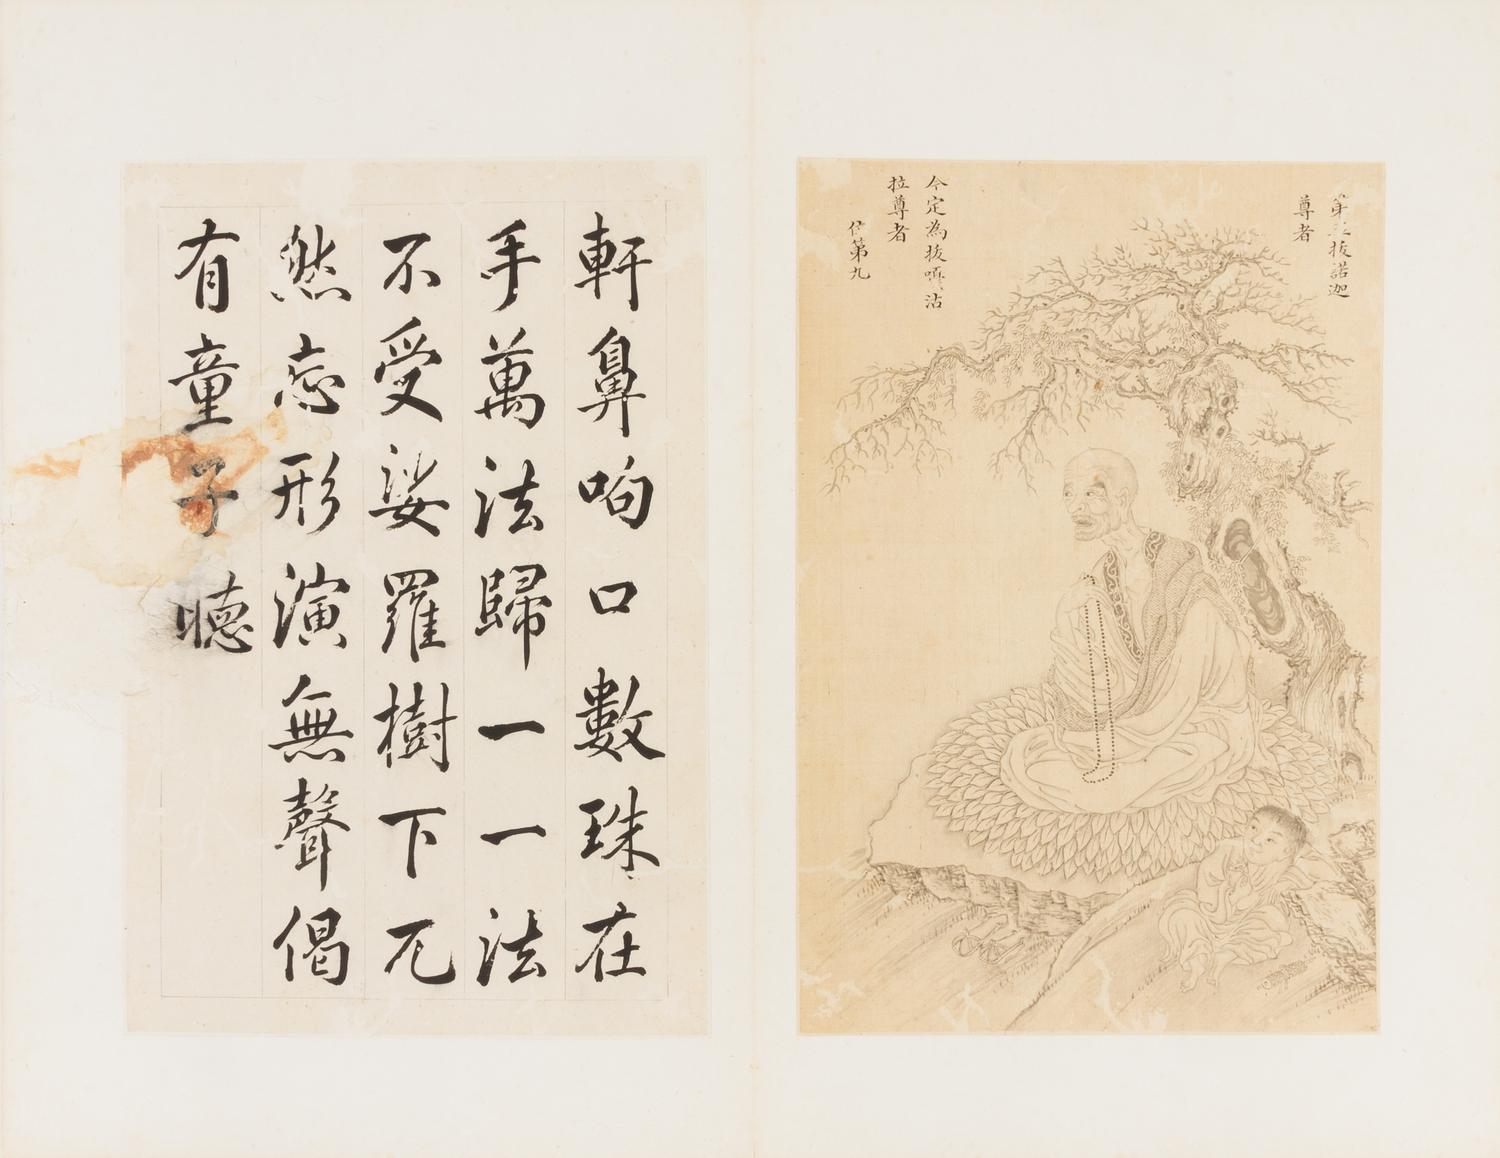 第三拔諾迦
尊者
今定為拔嘎沽
拉尊者
位第九
軒鼻呴口數珠在
手萬法歸一一法
不受娑羅樹下兀
然忘形演無聲偈
有童子聽